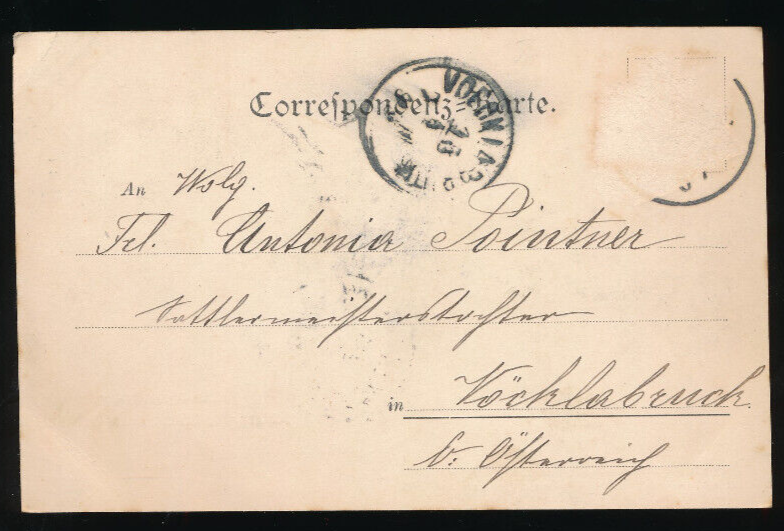 Correspondenz-Karte.
An Wolg.
Frl. Antonia Pointner
Sattlermeisterstochter
in Vöcklabruck
O: Österreich